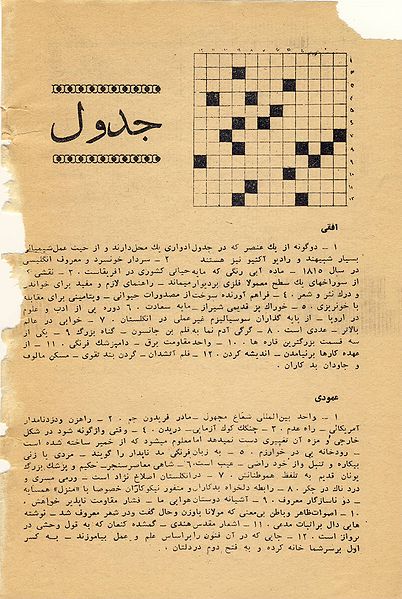 جدول
افقی
۱ ـ دوگونه از یك عنصر كه در جدول ادواری یك محل دارند و از حیث عمل شیمیائی
بسیار شبیهند و رادیو اكتیو نیز هستند ۲ ـ سردار خونسرد و معروف انگلیسی
در سال ۱۸۱۵ ـ ماده آبی رنگی كه مایه حیاتی كشوری در آفریقاست. ۳ ـ نقشی
از سوراخهای یك سطح معمولا فلزی بر دیوار میماند ـ راهنمای لازم و مفید برای خواندن
و درك نثر و شعر. ۴ ـ فرآهم آورنده سوخت از مصدورات حیوانی ـ ویتامینی برای مقابله
با خونریزی. ۵ ـ خوراك پز قدیمی شیراز ـ مایه سعادت. ۶ دوره پی از ادب و علوم
در اروپا ـ از پایه گذاران سوسیالیزم غیر عملی در انگلستان. ۷ ـ خوابی در عالم
بالاتر ـ عددی است. ۸ ـ گرگی آدم نما به قلم بن جانسون ـ گناه بزرگ ۹ ـ یكی از
سه قسمت بزرگترین قاره ها. ۱۰ ـ واحد مقاومت برق ـ دامپزشك فرنگی. ۱۱ ـ از
عهده كارها برنیامدن ـ اندیشه كردن. ۱۲ ـ قلم آتشدان ـ گردن بند تقوی ـ مسكن مالوف
و جاودان بد كاران.
عمودی
۱ ـ واحد بین‌المللی شعاع مجهول ـ مادر فریدون جم. ۲ ـ راهزن و دزد نامدار
آمریكائی ـ راه عدم. ۳ ـ چنگك كوك آزمایی ـ دریدن. ۴ ـ وقتی واژگونه شود در شكل
خارجی و مزه آن تغییری دست نمیدهد اما معلوم میشود كه از خمیر ساخته شده است
ـ رودخانه پی در خوارزم. ۵ ـ به زبان فرنگی مد ناپدار را گویند ـ مردی یا زنی
بیكاره و تنبل و از خود راضی ـ عیب است. ۶ ـ شاهی معاصر سنجر ـ حكیم و پزشك بزرگ
یونان قدیم به تلفظ هموطنانش. ۷ ـ در انگلستان اصلاح نژاد است ـ ورمی مسری و
درد ناك در جگر. ۸ ـ رابطه دلخواه بدكاران و منفور نیكوكاران خصوصا با «منزل» همسایه
ـ دو ناسازگار معروف. ۹ ـ آشیانه دوستان هوایی ما ـ فشار مقاومت ناپذیر خواهش.
۱۰ ـ اصوات ظاهر و باطن بی‌معنی كه مولانا با وزن و حال گفت و در شعر معروف شد ـ نوشته
هایی دال بر اثبات مدعی. ۱۱ ـ اشعار مقدس هندی ـ گمشده كنعان كه به قول وحشی در
پرواز است. ۱۲ ـ جایی كه در آن فنون را بر اساس علم و عمل بیاموزند ـ به كسر
اول بر سر شما خانه كرده و به فتح دوم در دلتان.